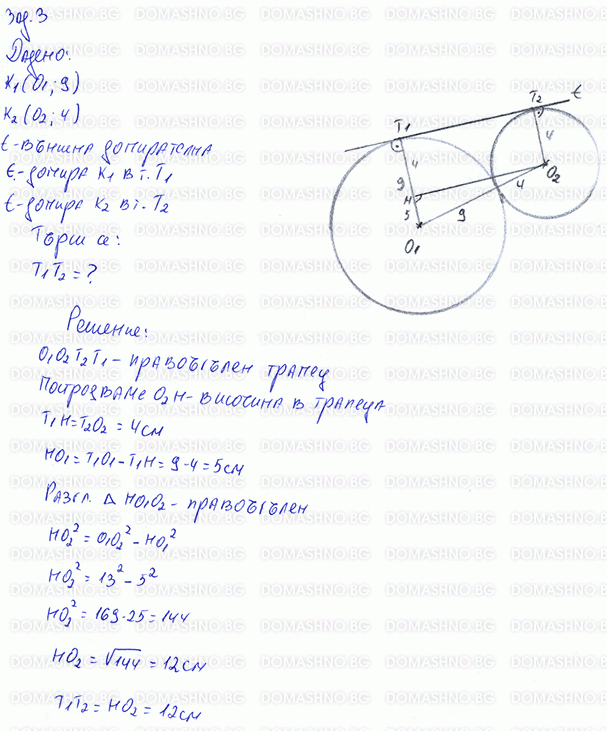 Зад. 3
Дадено:
K₁(O₁; 9)
K₂(O₂; 4)
t - външна допирателна
t - допира K₁ в т. T₁
t - допира K₂ в т. T₂
Търси се:
T₁T₂ = ?
T₁
T₂
t
4
4
9
H
5
9
4
O₂
O₁
Решение:
O₁O₂T₂T₁ - правоъгълен трапец
Построяваме O₂H - височина в трапеца
T₁H = T₂O₂ = 4 см
HO₁ = T₁O₁ - T₁H = 9 - 4 = 5 см
Разгл. Δ HO₁O₂ - правоъгълен
HO₂² = O₁O₂² - HO₁²
HO₂² = 13² - 5²
HO₂² = 169 - 25 = 144
HO₂ = √144 = 12 см
T₁T₂ = HO₂ = 12 см
DOMASHNO.BG